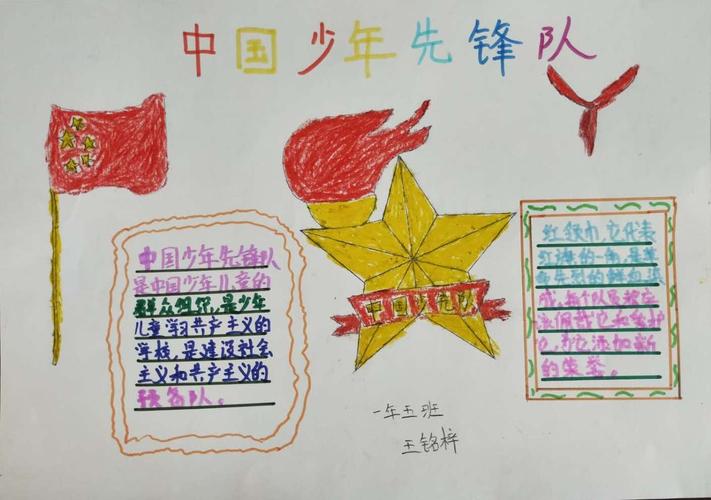 中国少年先锋队
中国少先队
中国少年先锋队
是中国少年儿童的
群众组织,是少年
儿童学习共产主义的
学校,是建设社会
主义和共产主义的
预备队。
红领巾,它代表
红旗的一角,是革
命先烈的鲜血染
成,每个队员都应
该佩戴它和爱护
它,为它添加新
的荣誉。
一年五班
王铭梓